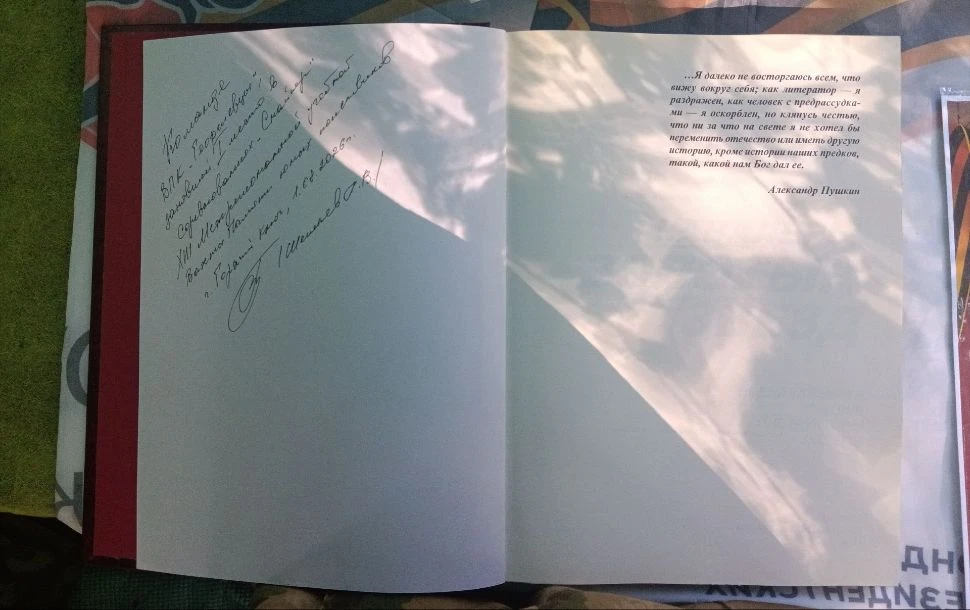 Команде
ВПК "Георгиевцы",
занявшей 1 место в
соревнованиях "Снайпер"
XIII Межрегиональной учебной
Вахты Памяти юных поисковиков
г. Горячий Ключ, 1.08.2026г.
…Я далеко не восторгаюсь всем, что
вижу вокруг себя; как литератор — я
раздражен, как человек с предрассудка-
ми — я оскорблен, но клянусь честью,
что ни за что на свете я не хотел бы
переменить отечество или иметь другую
историю, кроме истории наших предков,
такой, какой нам Бог дал ее.
Александр Пушкин
НД
ЕЗИДЕНТСКИХ